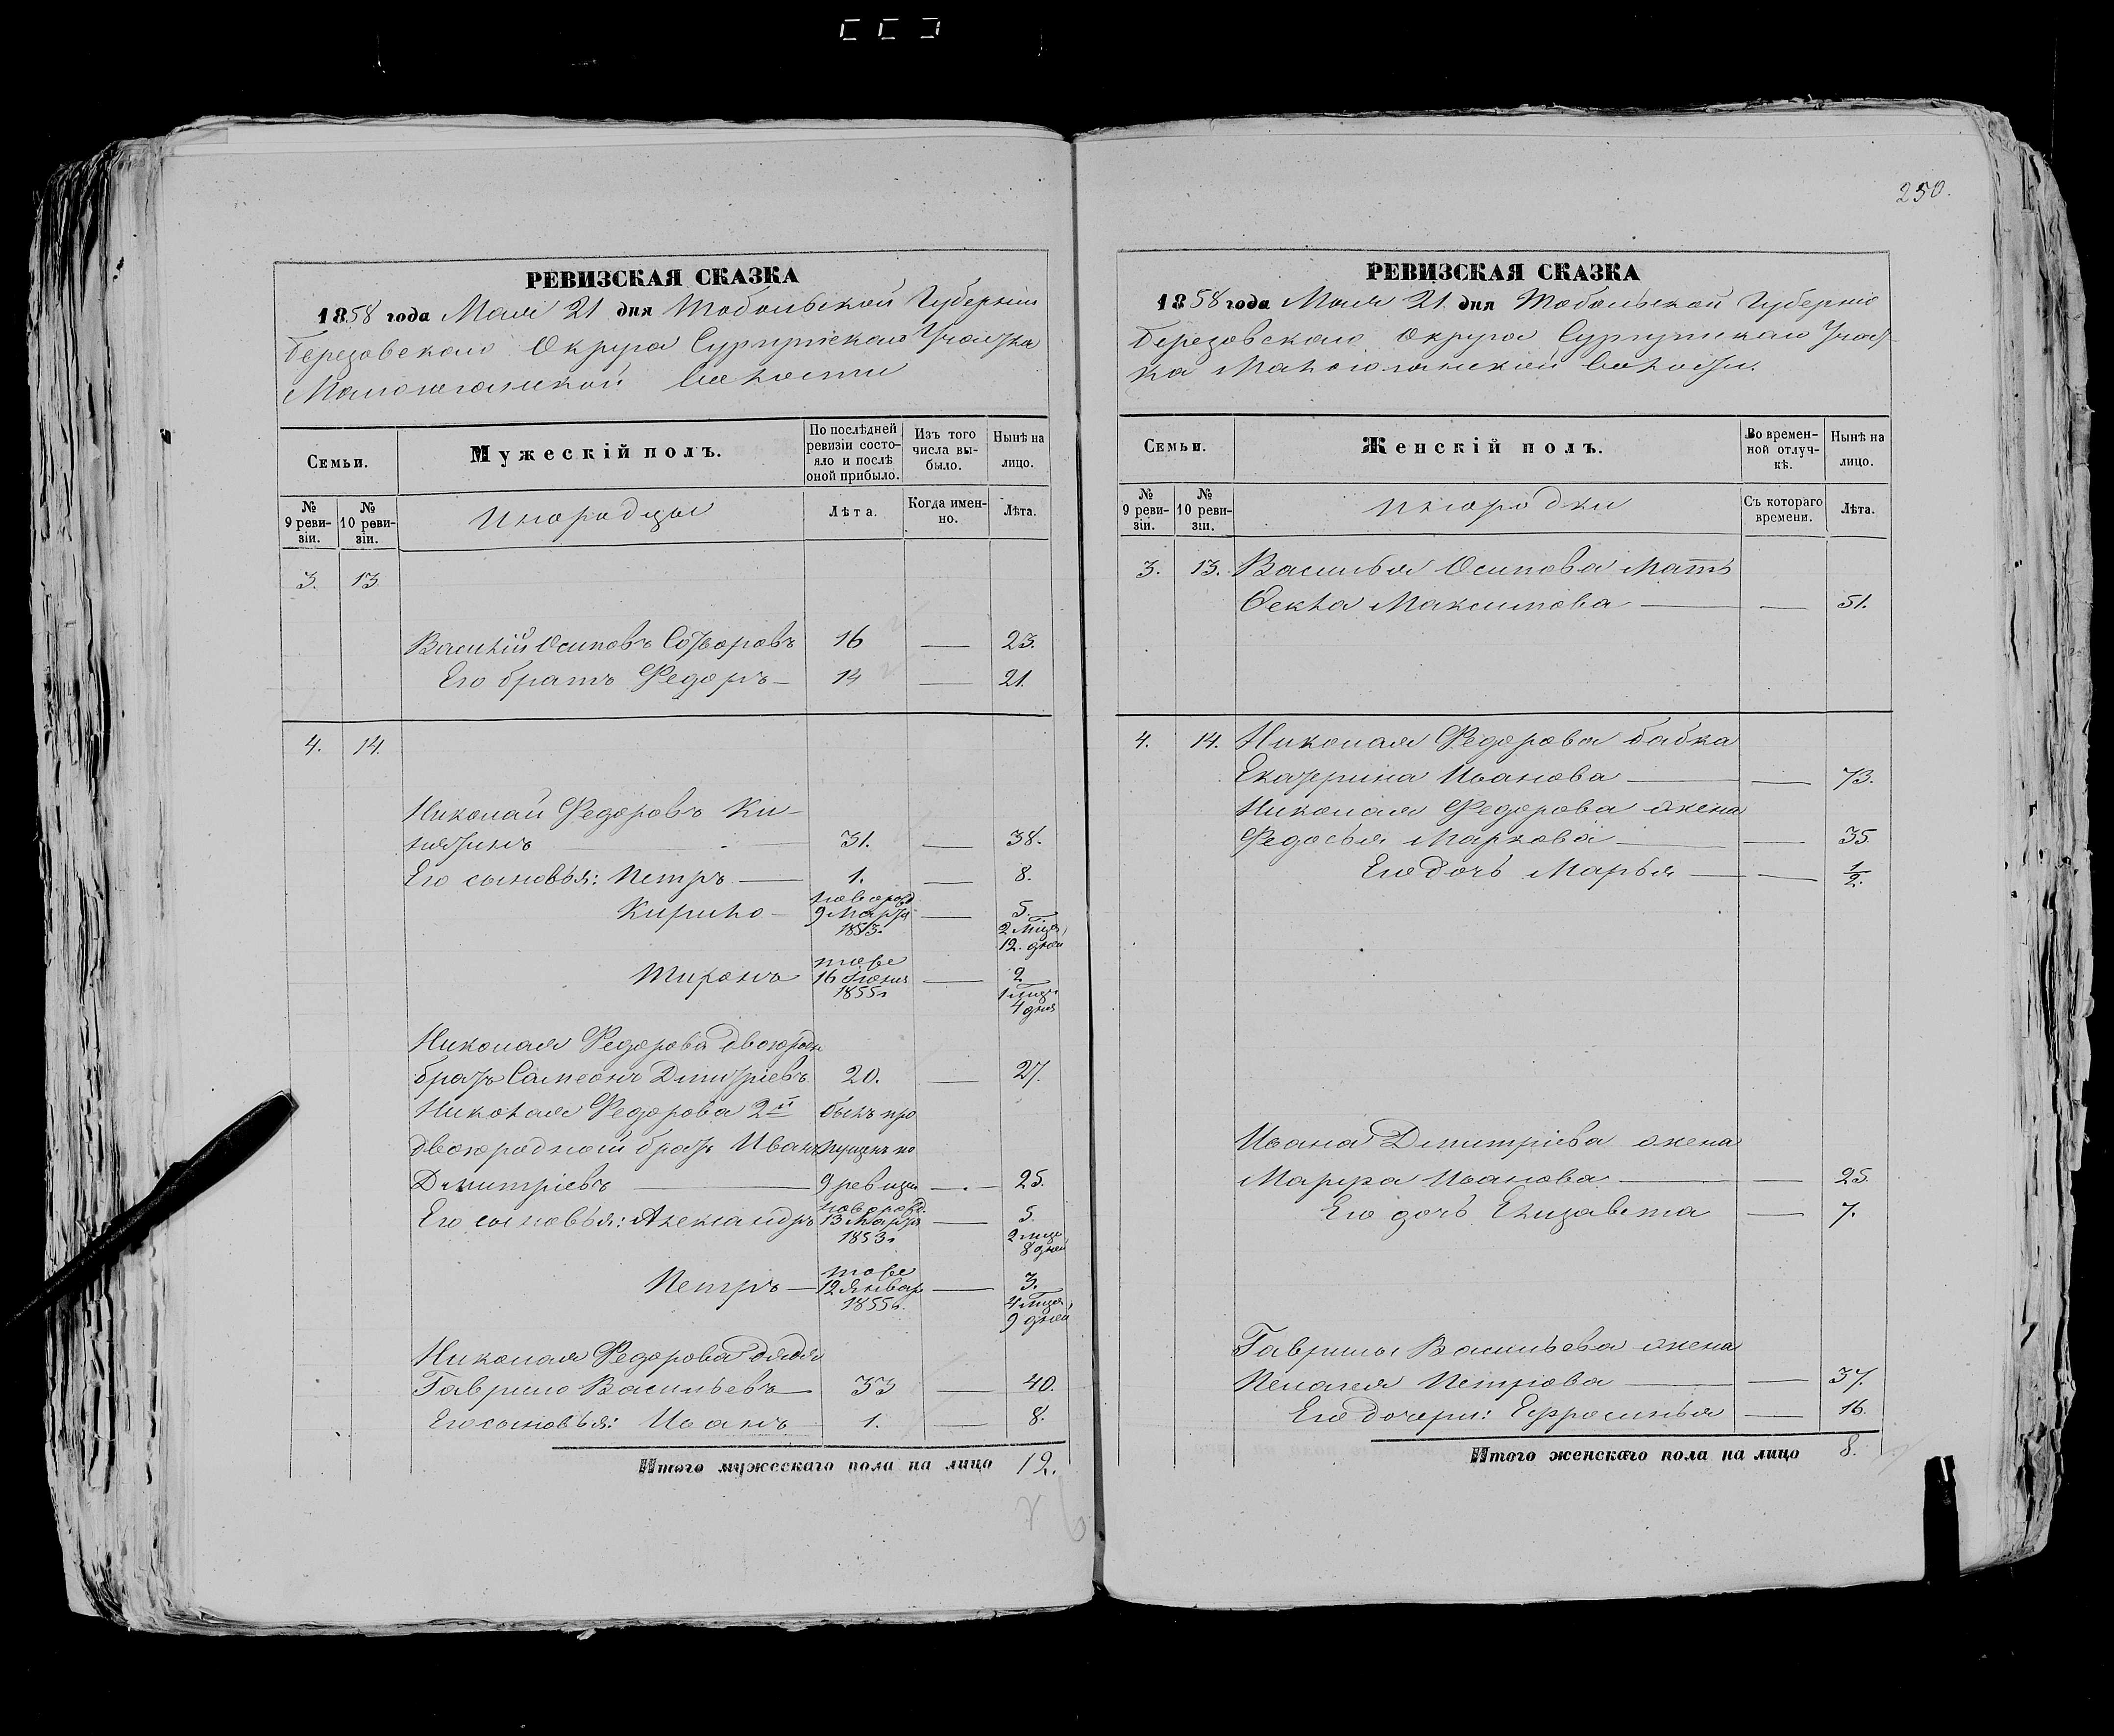 250.
РЕВИЗСКАЯ СКАЗКА
1858 года Мая 21 дня Тобольской Губерніи
Березовскаго Округа Сургутскаго Участка
волости
Семьи.
Мужескій полъ.
По послѣдней ревизіи состояло и послѣ оной прибыло.
Изъ того числа выбыло.
Нынѣ на лицо.
№ 9 ревизіи.
№ 10 ревизіи.
Инородцы
Лѣта.
Когда именно.
Лѣта.
3. 13
Василій Осиповъ 16 — 23.
Его братъ Федоръ — 14 — 21.
4. 14.
Николай Федоровъ
31. — 38.
Его сыновья: Петръ — 1. — 8.
новорожд
Кирило — 9 Марта — 5.
1853. 2 мѣся,
12. дней
тоже
Миронъ 16 — 2
1855г
4 дня
Николая Федорова двоюродн
братъ Самсонъ Дмитріевъ 20. — 27.
Николая Федорова 2й былъ про
двоюродной братъ Иванъ пущенъ по
Дмитріевъ — 9 ревизіи — 25.
новорожд.
Его сыновья: Александръ 13 Марта — 5.
1853г 2 мѣся,
8 дней
тоже
Петръ — 12 Январ — 3.
1855г. 4 мѣся,
9 дней
Николая Федорова дядя
Гаврило Васильевъ — 33 — 40.
Его сыновья: Иванъ 1. — 8.
Итого мужескаго пола на лицо 12.
РЕВИЗСКАЯ СКАЗКА
1858 года Мая 21. дня Тобольской Губерніи
Березовскаго Округа Сургутскаго Участ-
ка волости.
Семьи.
Женскій полъ.
Во временной отлучкѣ.
Нынѣ на лицо.
№ 9 ревизіи.
№ 10 ревизіи.
Инородки
Съ котораго времени.
Лѣта.
3. 13. Василья Осипова мать
Фекла Максимова — — 51.
4. 14. Николая Федорова бабка
Екатерина Иванова — — 73.
Николая Федорова жена
Федосья Маркова — — 35
Его дочь Марья — — 1/2.
Ивана Дмитріева жена
Марфа Иванова — — 25
Его дочь Елизавета — 7.
Гаврилы Васильева жена
Пелагея Петрова — — 37.
Его дочери: Ефросинья — 16.
Итого женскаго пола на лицо 8.